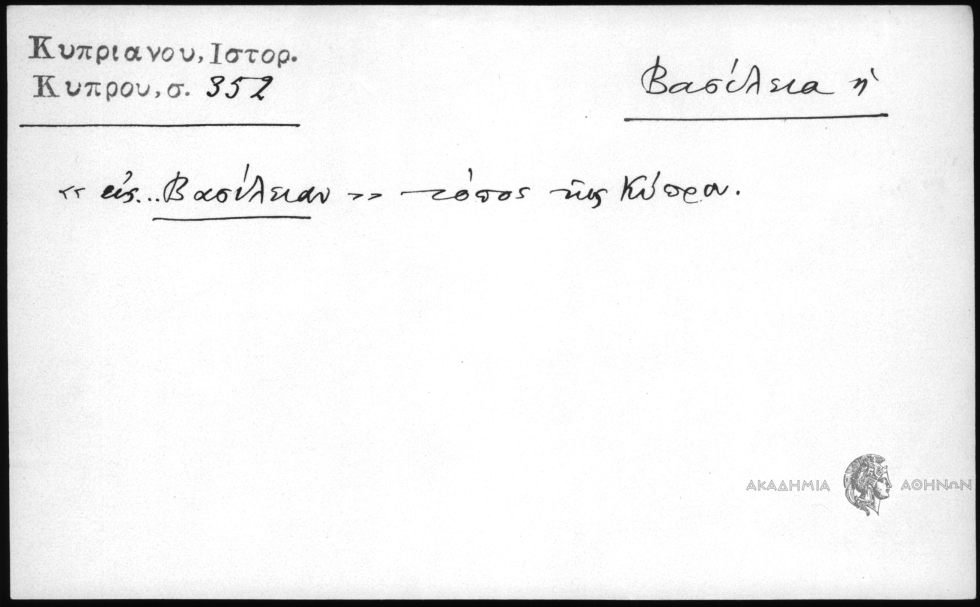 Κυπριανου, Ιστορ.
Κυπρου, σ. 352
Βασίλεια ἡ
« εἰς... Βασίλειαν » τόπος τῆς Κύπρου.
ΑΚΑΔΗΜΙΑ ΑΘΗΝΩΝ